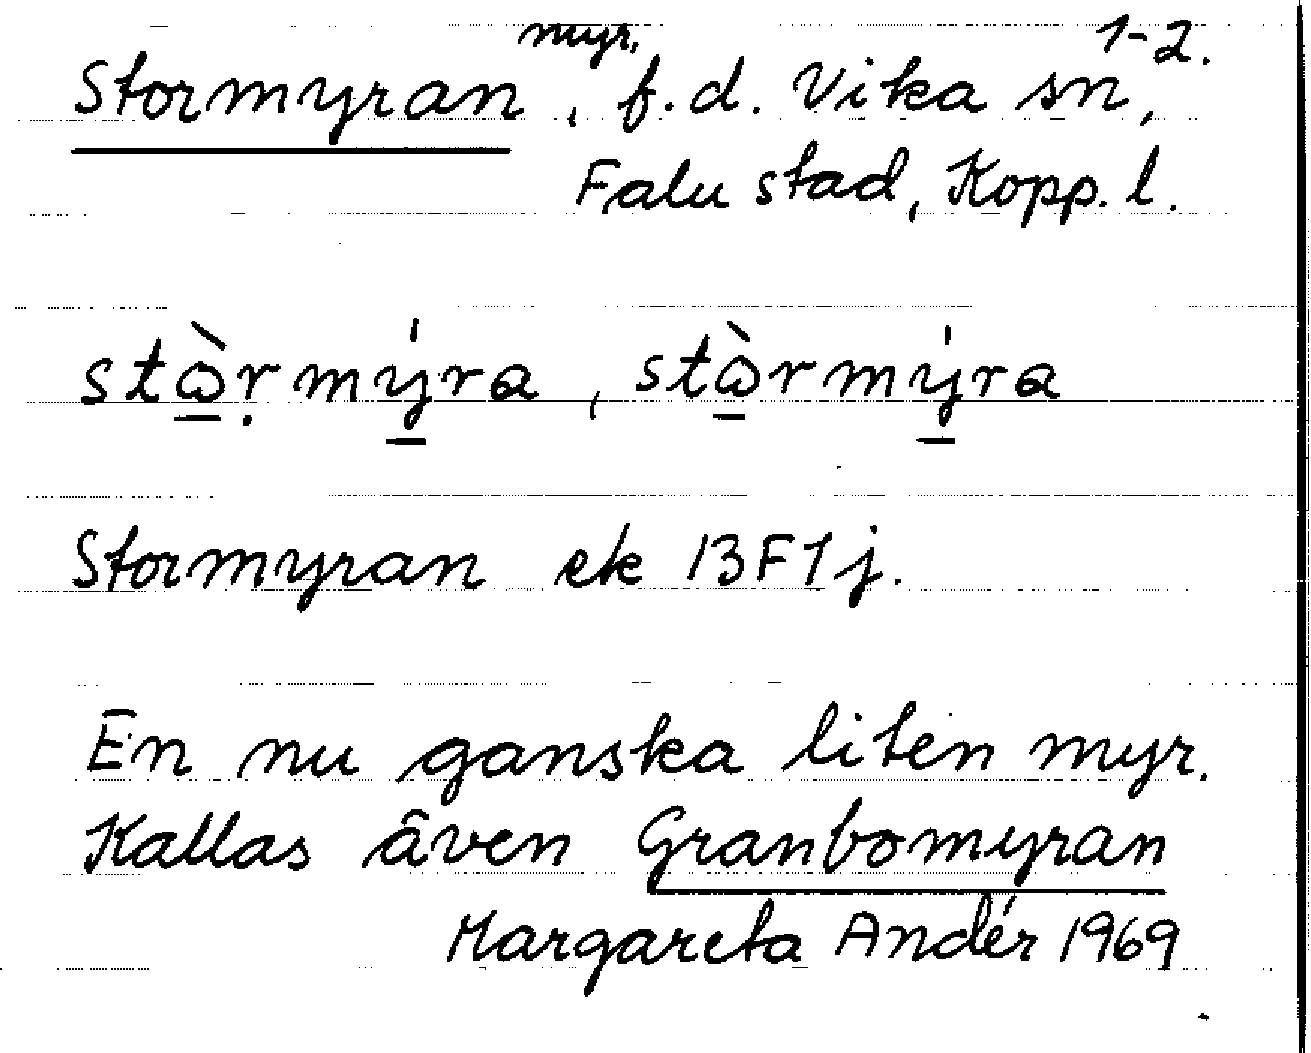 Stormyran, myr, f.d. Vika sn, 1-2.
Falu stad, Kopp. l.
stɷ̠̀ṛmý̠ra, stɷ̠̀rmý̠ra
Stormyran ek 13F1j.
En nu ganska liten myr.
Kallas även Granbomyran
Margareta Andér 1969